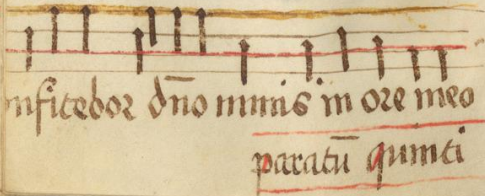 nfitebor dn̄o nimis in ore meo
paratū quinti